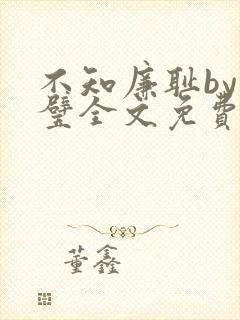 不知廉耻by
璧全文免费
董鑫